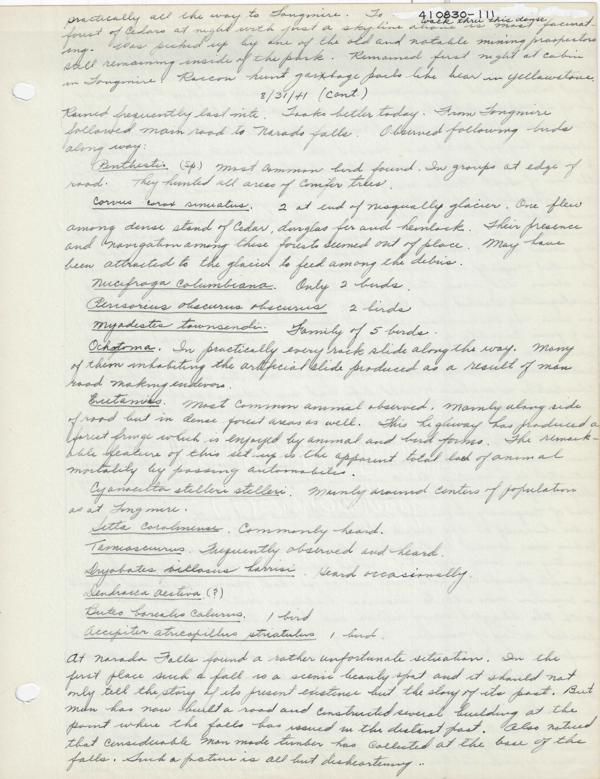 practically all the way to Longmire. To
410830-111
walk thru this dense
forest of Cedars at night with just a skyline above is most fascinat-
ing. Was picked up by one of the old and notable mining prospectors
still remaining inside of the park. Remained first night at cabin
in Longmire. Racoon hunt garbage pails like bear in Yellowstone.
8/31/41 (cont.)
Rained frequently last nite. Looks better today. From Longmire
followed main road to Narada falls. Observed following birds
along way:
Penthestes (sp) Most common bird found. In groups at edge of
road. They hunted all areas of conifer trees.
Corvus corax sinuatus. 2 at end of Nisqually glacier. One flew
among dense stand of Cedar, douglas fir and hemlock. Their presence
and navigation among these forests seemed out of place. May have
been attracted to the glacier to feed among the debris.
Nucifraga columbiana. Only 2 birds.
Perisoreus obscurus obscurus 2 birds
Myadestes townsendi. Family of 5 birds.
Ochotona. In practically every rock slide along the way. Many
of them inhabiting the artificial slide produced as a result of man
road making endevors.
Eutamias. Most common animal observed. Mainly along side
of road but in dense forest areas as well. This highway has produced a
forest fringe which is enjoyed by animal and bird forms. The remark-
able feature of this set-up is the apparent total lack of animal
mortality by passing automobiles.
Cyanocitta stelleri stelleri. Mainly around centers of population
as at Longmire.
Sitta Commonly heard.
Tamiasciurus. Frequently observed and heard.
Dryobates villosus harrisi. Heard occasionally.
Dendroica aestiva (?)
Buteo borealis calurus. 1 bird
Accipiter atricapillus striatulus 1 bird.
At Narada Falls found a rather unfortunate situation. In the
first place such a fall is a scenic beauty spot and it should not
only tell the story of its present existence but the story of its past. But
man has now built a road and constructed several building at the
point where the falls has issued in the distant past. Also noticed
that considerable man made timber has collected at the base of the
falls. Such a picture is all but disheartening..